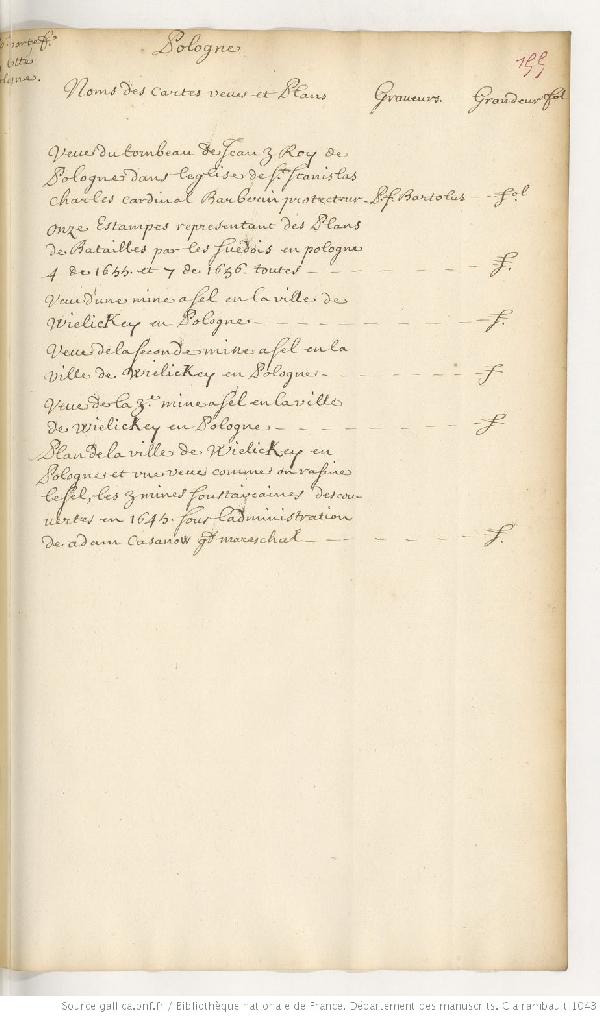 Pologne
155
Noms des cartes veues et Plans Graveurs. Grandeur fol
Veue du tombeau de Jean 3 Roy de
Pologne dans leglise de St. Stanislas
Charles cardinal Barberin protecteur P. f. Bartolus fol
onze Estampes representant des Plans
de Batailles par les suedois en pologne
4 de 1655 et 7 de 1656 toutes f.
Veue d'une mine a sel en la ville de
Wielickey en Pologne f.
Veue de la seconde mine a sel en la
ville de Wielickey en Pologne f
Veue de la 3e. mine a sel en la ville
de Wielickey en Pologne f.
Plan de la ville de Wielickey en
Pologne et une veue comme on rafine
le sel, les 3 mines soustairaines descou-
vertes en 1645 sous l'administration
de adam Casanow gd mareschal f.
Source gallica.bnf.fr / Bibliothèque nationale de France. Département des manuscrits. Clairambault 1043